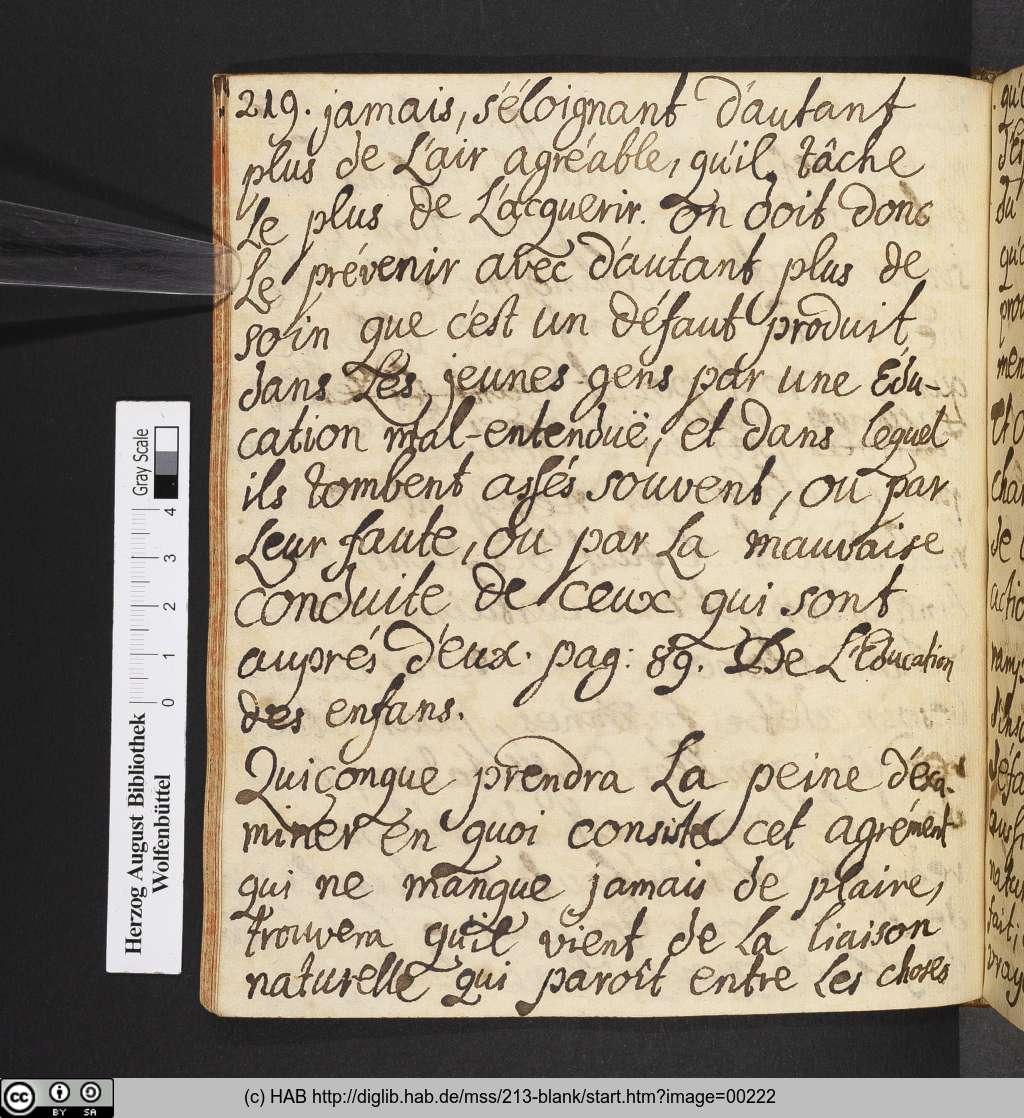 219. jamais, s'éloignant d'autant
plus de L'air agréable, qu'il tâche
Le plus de L'acquerir. On doit donc
Le prévenir avec d'autant plus de
soin que c'est un défaut produit
dans Les jeunes gens par une Edu-
cation mal-entenduë, et dans lequel
ils tombent assés souvent, ou par
Leur faute, ou par La mauvaise
conduite de ceux qui sont
auprés d'eux. pag: 89. De L'Education
des enfans.
Quiconque prendra La peine d'exa-
miner en quoi consiste cet agrément
qui ne manque jamais de plaire,
trouvera qu'il vient de La liaison
naturelle qui paroît entre Les choses
Gray Scale
0 1 2 3 4
Herzog August Bibliothek
Wolfenbüttel
cc BY SA
(c) HAB http://diglib.hab.de/mss/213-blank/start.htm?image=00222